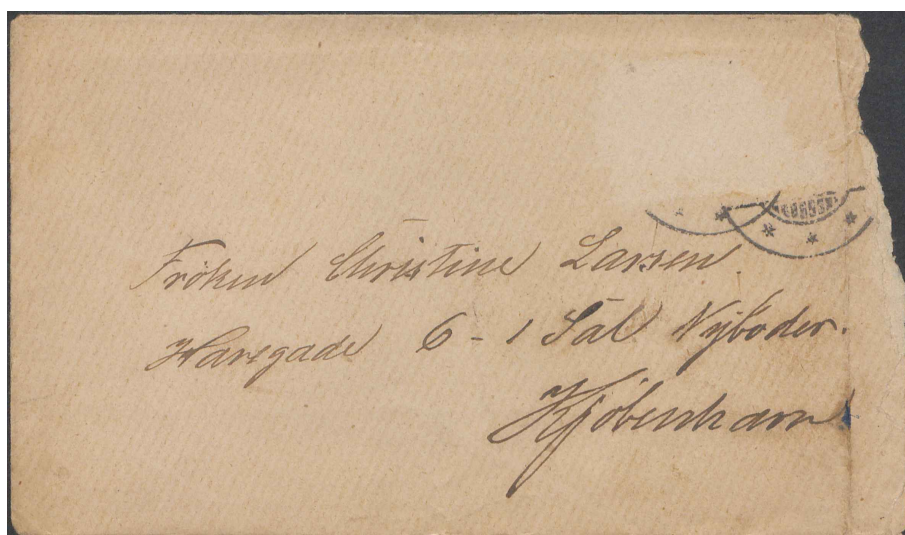 Fröken Christine Larsen
Haregade 6 - 1 Sal Nyboder.
Kjöbenhavn